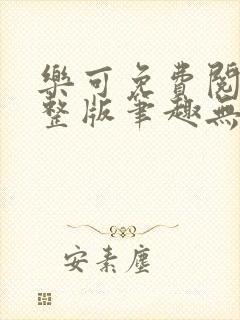 樂可免費閱
整版筆趣無
安素塵